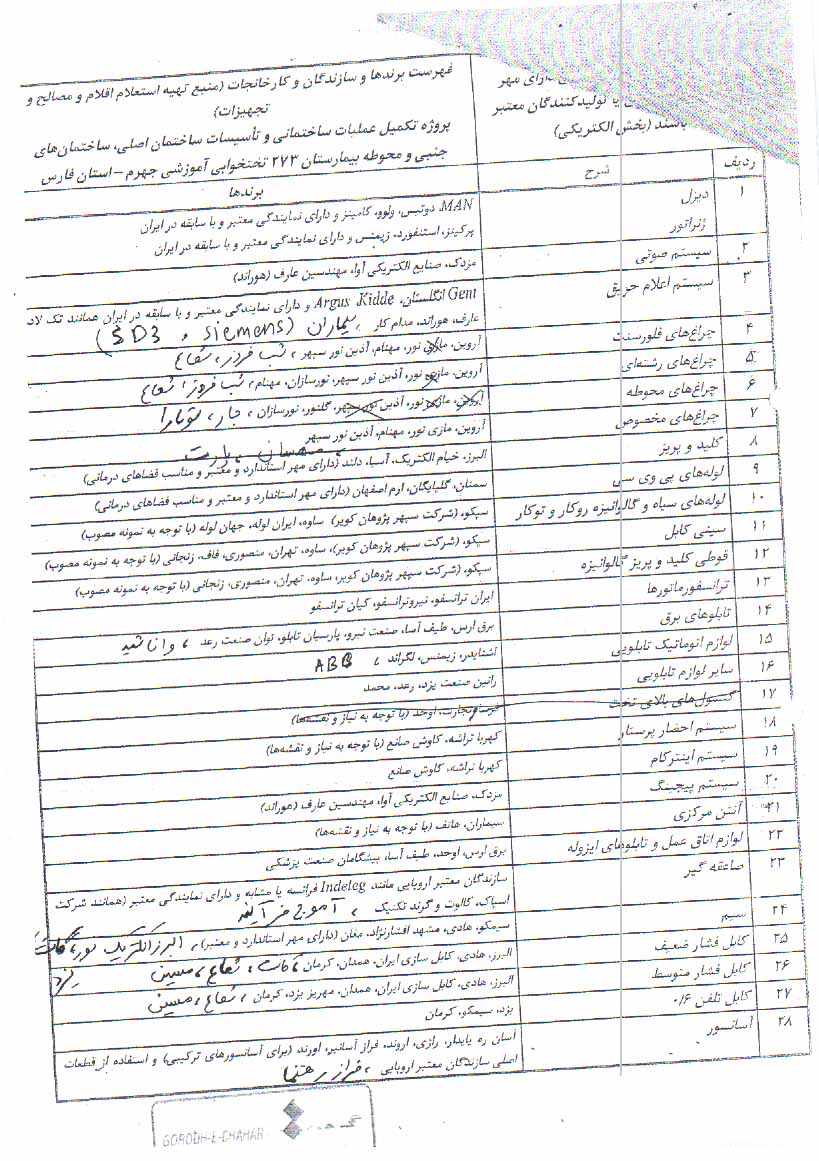 فهرست برندها و سازندگان و کارخانجات (منبع تهیه استعلام اقلام و مصالح و تجهیزات)
پروژه تکمیل عملیات ساختمانی و تأسیسات ساختمان اصلی، ساختمان‌های جنبی و محوطه بیمارستان ۲۷۳ تختخوابی آموزشی جهرم – استان فارس
دارای مهر
یا تولیدکنندگان معتبر
باشند (بخش الکتریکی)
ردیف شرح برندها
۱ دیزل MAN، دوتیس، ولوو، کامینز و دارای نمایندگی معتبر و با سابقه در ایران
ژنراتور پرکینز، استنفورد، زیمنس و دارای نمایندگی معتبر و با سابقه در ایران
۲ سیستم صوتی مزدک، صنایع الکتریکی آوا، مهندسین عارف (هوراند)
۳ سیستم اعلام حریق Gent انگلستان، Argus، Kidde و دارای نمایندگی معتبر و با سابقه در ایران همانند تک لاد
عارف، هوراند، مدام کار، سیماران (SD3 و siemens)
۴ چراغ‌های فلورسنت آروین، مازی نور، مهنام، آذین نور سپهر، شب فروز، شعاع
۵ چراغ‌های رشته‌ای آروین، مازی نور، آذین نور سپهر، نورسازان، مهنام، شب فروز، شعاع
۶ چراغ‌های محوطه آروین، مازی نور، آذین نور سپهر، گلنور، نورسازان، جار،
۷ چراغ‌های مخصوص آروین، مازی نور، مهنام، آذین نور سپهر
۸ کلید و پریز البرز، خیام الکتریک، آسیا، دلند (دارای مهر استاندارد و معتبر و مناسب فضاهای درمانی)
۹ لوله‌های پی وی سی سمنان، گلپایگان، ارم اصفهان (دارای مهر استاندارد و معتبر و مناسب فضاهای درمانی)
۱۰ لوله‌های سیاه و گالوانیزه روکار و توکار سپکو، (شرکت سپهر پژوهان کویر) ساوه، ایران لوله، جهان لوله (با توجه به نمونه مصوب)
۱۱ سینی کابل سپکو، (شرکت سپهر پژوهان کویر)، ساوه، تهران، منصوری، فاف، زنجانی (با توجه به نمونه مصوب)
۱۲ قوطی کلید و پریز گالوانیزه سپکو، (شرکت سپهر پژوهان کویر، ساوه، تهران، منصوری، زنجانی (با توجه به نمونه مصوب)
۱۳ ترانسفورماتورها ایران ترانسفو، نیروترانسفو، کیان ترانسفو
۱۴ تابلوهای برق برق ارس، طیف آسا، صنعت نیرو، پارسیان تابلو، توان صنعت رعد،
۱۵ لوازم اتوماتیک تابلویی اشنایدر، زیمنس، لگراند، ABB
۱۶ سایر لوازم تابلویی رائین صنعت یزد، رعد، محمد
۱۷ کنسول‌های بالای تخت فرسام تجارت، اوحد (با توجه به نیاز و نقشه‌ها)
۱۸ سیستم احضار پرستار کهربا تراشه، کاوش صانع (با توجه به نیاز و نقشه‌ها)
۱۹ سیستم اینترکام کهربا تراشه، کاوش صانع
۲۰ سیستم پیجینگ مزدک، صنایع الکتریکی آوا، مهندسین عارف (هوراند)
۲۱ آنتن مرکزی سیماران، هاتف (با توجه به نیاز و نقشه‌ها)
۲۲ لوازم اتاق عمل و تابلوهای ایزوله برق ارس، اوحد، طیف آسا، پیشگامان صنعت پزشکی
۲۳ صاعقه گیر سازندگان معتبر اروپایی مانند Indeleg فرانسه یا مشابه و دارای نمایندگی معتبر (همانند شرکت
آسپاک، کالوت و گرند تکنیک، آموج فرآیند
۲۴ سیم سیمکو، هادی، مشهد افشارنژاد، مغان (دارای مهر استاندارد و معتبر)، البرز الکتریک نور،
۲۵ کابل فشار ضعیف البرز، هادی، کابل سازی ایران، همدان، کرمان، شعاع، مسین، یزد
۲۶ کابل فشار متوسط البرز، هادی، کابل سازی ایران، همدان، مهریز یزد، کرمان، شعاع، مسین
۲۷ کابل تلفن ۰/۶ یزد، سیمکو، کرمان
۲۸ آسانسور آسان ره پایدار، رازی، اروند، فراز آسانبر، اورند (برای آسانسورهای ترکیبی) و استفاده از قطعات
اصلی سازندگان معتبر اروپایی، فراز رهنما
GORODH-E-CHAHAR